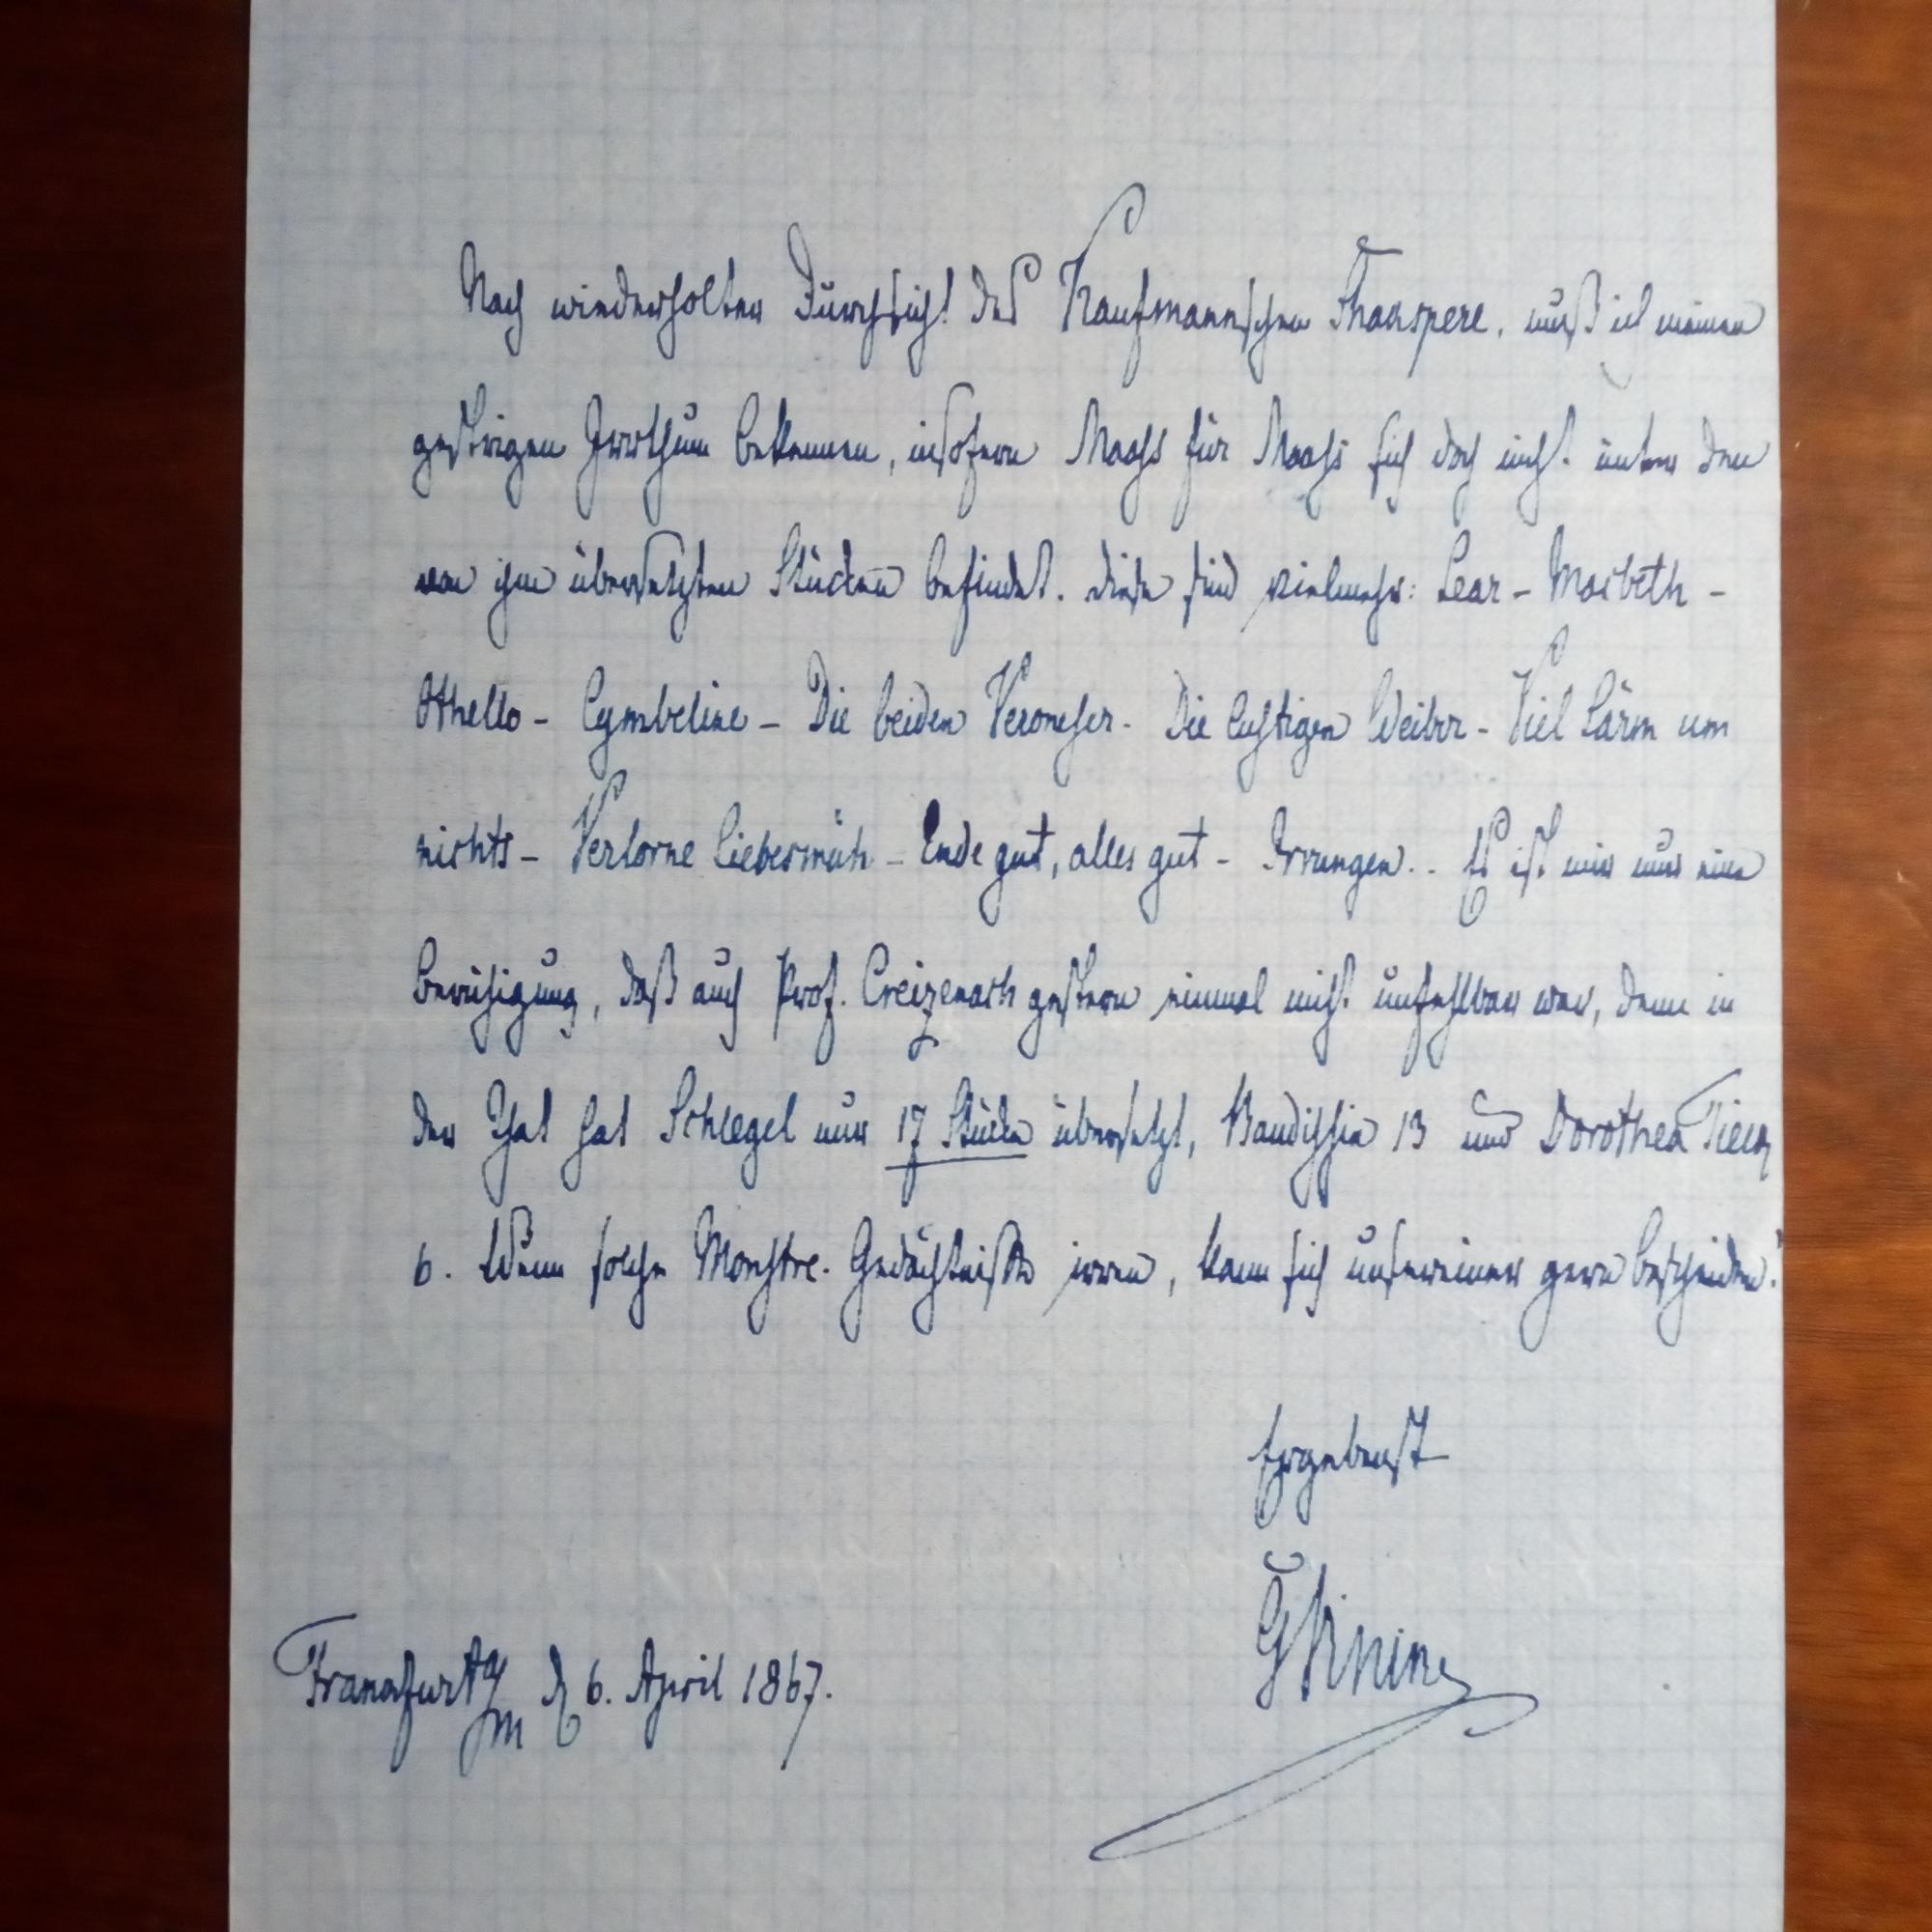 Nach wiederholter Durchsicht des Kaufmannschen Shakspere, muß ich meinen
gestrigen Irrthum bekennen, insofern Maaß für Maaß sich doch nicht unter den
von ihm übersetzten Stücken befindet. Diese sind vielmehr: Lear - Macbeth -
Othello - Cymbeline - Die beiden Veroneser - Die lustigen Weiber - Viel Lärm um
nichts - Verlorne Liebesmüh - Ende gut, alles gut - Irrungen. - Es ist mir nur eine
Beruhigung, daß auch Prof. Creizenach gestern einmal nicht unfehlbar war, denn in
der That hat Schlegel nur 17 Stücke übersetzt, Baudissin 13 und Dorothea Tieck
6. Wenn solche Monstre-Gedächtnisse irren, kann sich unsereiner gern bescheiden.
Ergebenst
Frankfurt a/m d 6. April 1867.